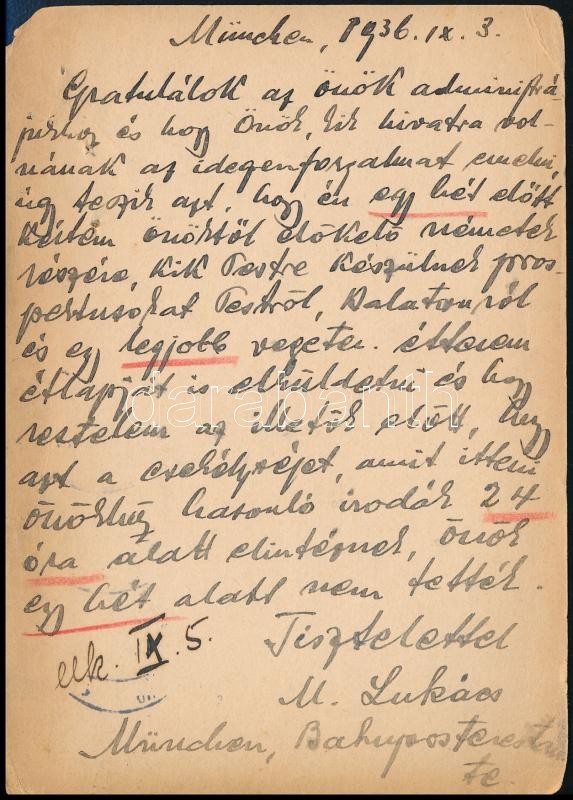 München, 1936. IX. 3.
Gratulálok az önök administrá-
jukhoz és hogy Önök, kik hivatva vol-
nának az idegenforgalmat emelni,
úgy teszik azt, hogy én egy hét előtt
kértem önöktől előkelő németek
részére, kik Pestre készülnek pros-
pektusokat Pestről, Balatonról
és egy legjobb vegetar. étterem
étlapját is elküldetni és hogy
restelem az illetők előtt, hogy
azt a csekélységet, amit itteni
önökhöz hasonló irodák 24
óra alatt elintéznek, önök
egy hét alatt nem tették.
Tisztelettel
elk. IX. 5.
M. Lukács
München, Bahnposterestan
te.
darabanth